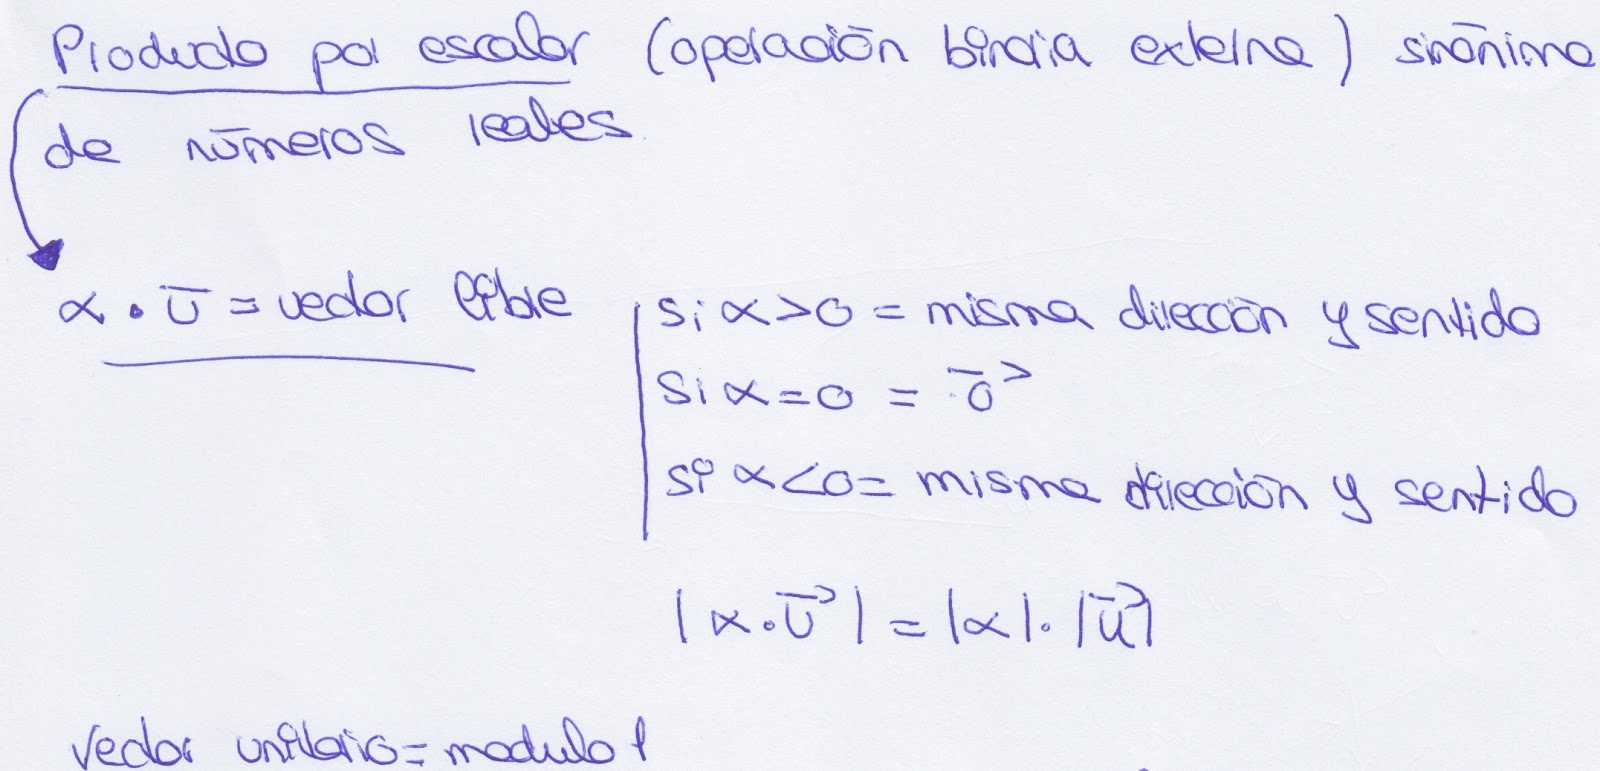 Producto por escalar (operación binaria externa) sinónimo
de números reales
α · ū = vector libre
si α > 0 = misma dirección y sentido
si α = 0 = 0⃗
si α < 0 = misma dirección y sentido
|α · u⃗| = |α| · |u⃗|
Vector unitario = modulo 1